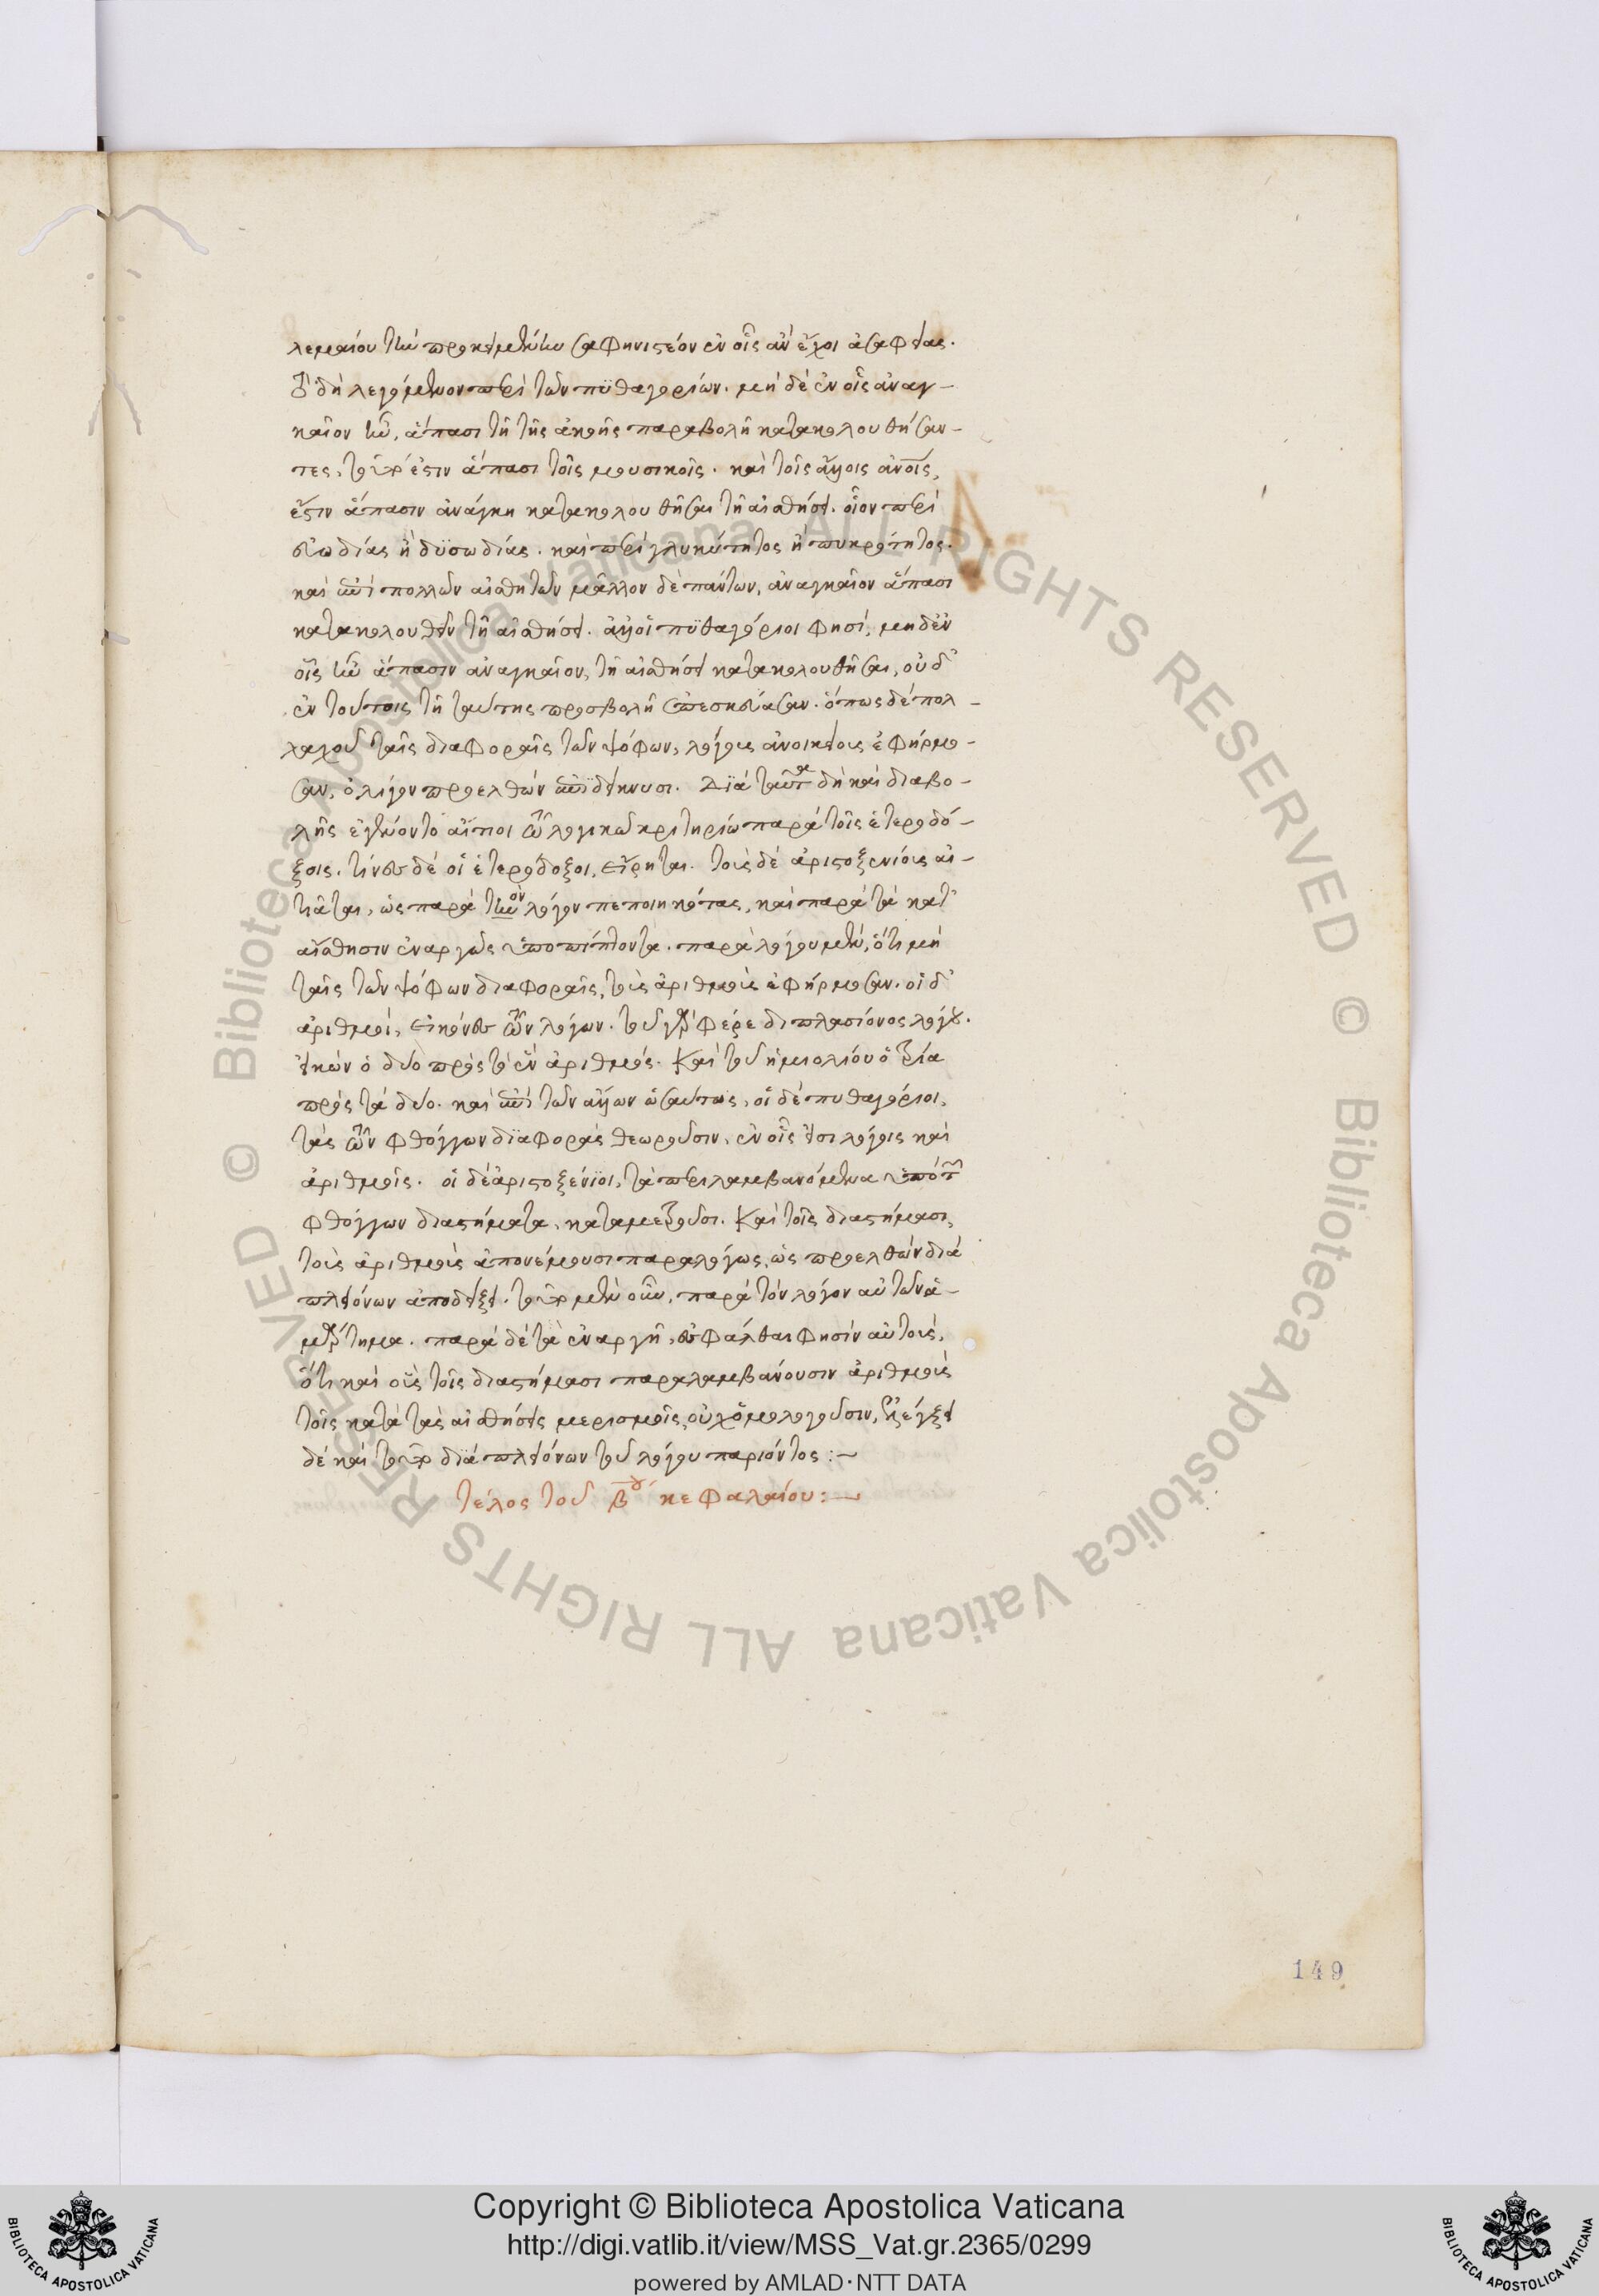 λεμαίου τὴν προκειμένην σαφηνιστέον ἐν οἷς ἂν ἔχοι ἀσαφείας.
τὸ δὴ λεγόμενον περὶ τῶν πϋθαγορίων. μὴ δὲ ἐν οἷς ἀναγ-
καῖον ἦν, ἅπασι τῇ τῆς ἀκοῆς παραβολῇ κατακολουθήσαν-
τες, τοῦτ' ἔστιν ἅπασι τοῖς μουσικοῖς. καὶ τοῖς ἄλλοις ἀνοις,
ἔστιν ἅπασιν ἀνάγκη κατακολουθῆσαι τῇ αἰσθήσει. οἷον περὶ
εὐωδίας ἢ δϋσωδίας. καὶ περὶ γλυκύτητος ἢ πικρότητος.
καὶ ἐπὶ πολλῶν αἰσθητῶν μᾶλλον δὲ πάντων, ἀναγκαῖον ἅπασι
κατακολουθεῖν τῇ αἰσθήσει. ἀλλ' οἱ πϋθαγόριοι φησὶ, μηδ' ἐν
οἷς ἦν ἅπασιν ἀναγκαῖον, τῇ αἰσθήσει κατακολουθῆσαι, οὐδ'
ἐν τούτοις τῇ ταύτης προσβολῇ ἐπεσκεύασαν. ὅπως δὲ πολ-
λαχοῦ ταῖς διαφοραῖς τῶν ψόφων, λόγους ἀνοικείους ἐφήρμο-
σαν, ὀλίγον προελθὼν ἐπϊδείκνυσι. Διὰ ταῦτα δὴ καὶ διαβο-
λῆς ἐγένοντο αἴτιοι τῷ λογικῷ κριτηρίῳ παρὰ τοῖς ἑτεροδό-
ξοις. τίνες δὲ οἱ ἑτερόδοξοι, εἴρηται. τοὺς δὲ ἀριστοξενίους αἰ-
τιᾶται, ὡς παρὰ τὴν ὸν λόγον πεποιηκότας, καὶ παρὰ τὰ κατ'
αἴσθησιν ἐναργῶς ὑποπίπτοντα. παρὰ λόγου μὲν, ὅτι μὴ
ταῖς τῶν ψόφων διαφοραῖς, τοὺς ἀριθμοὺς ἐφήρμοσαν. οἱ δ'
ἀριθμοὶ, εἰκόνες τῶν λόγων. τοῦ γὰρ φέρε διπλασίονος λόγου.
εἰκὼν ὁ δύο πρὸς τὸ ἓν ἀριθμός. Καὶ τοῦ ἡμιολίου ὁ τρία
πρὸς τὰ δύο. καὶ ἐπὶ τῶν ἄλλων ὡσαύτως, οἱ δὲ πυθαγόριοι,
τὰς τῶν φθόγγων δϊαφορὰς θεωροῦσιν, ἐν οἷς εἰσι λόγοις καὶ
ἀριθμοῖς. οἱ δὲ ἀριστοξένϊοι, τὰ περιλαμβανόμενα ὑπὸ τῶν
φθόγγων διαστήματα, καταμετροῦσι. Καὶ τοῖς διαστήμασι,
τοὺς ἀριθμοὺς ἀπονέμουσι παραλόγως, ὡς προελθὼν διὰ
πλειόνων ἀποδείξει. τοῦτο μὲν οὖν, παρὰ τὸν λόγον αὐτῶν ἁ-
μάρτημα. παρὰ δὲ τὰ ἐναργῆ, σφάλθαι φησὶν αὐτοὺς,
ὅτι καὶ οὓς τοῖς διαστήμασι παραλαμβάνουσιν ἀριθμοὺς
τοῖς κατὰ τὰς αἰσθήσεις μερισμοῖς, οὐχ ὁμολογοῦσιν, ἐξελέγξει
δὲ καὶ τοῦτο δϊὰ πλειόνων τοῦ λόγου παριόντος:~
τέλος τοῦ β̅ου κεφαλαίου:~
149
© Biblioteca Apostolica Vaticana ALL RIGHTS RESERVED © Biblioteca Apostolica Vaticana ALL RIGHTS RESERVED
Copyright © Biblioteca Apostolica Vaticana
http://digi.vatlib.it/view/MSS_Vat.gr.2365/0299
powered by AMLAD·NTT DATA
BIBLIOTECA APOSTOLICA VATICANA
BIBLIOTECA APOSTOLICA VATICANA